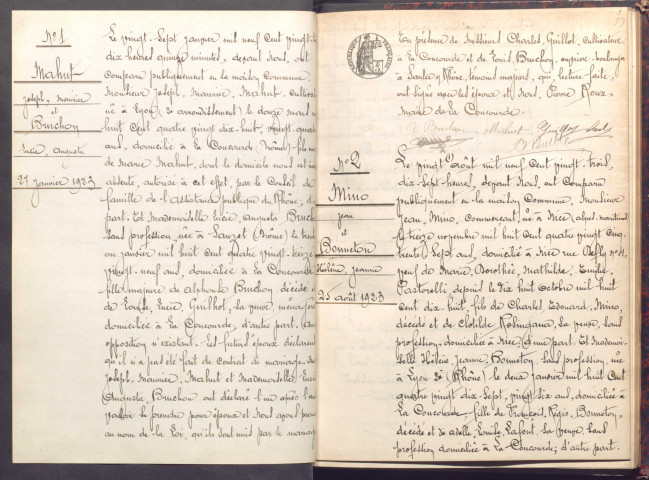 N°1
Mahut
Joseph, Maurice
et
Bruchon
Lucie, Augusta
27 Janvier 1923
Le vingt-sept janvier mil neuf cent vingt-t
dix heures quinze minutes, devant nous, ont
comparu publiquement en la maison commune
Monsieur Joseph, Maurice, Mahut, cultiva
né à Lyon (2e arrondissement) le douze mars m
huit cent quatre vingt dix-huit, vingt quat
ans, domicilié à la Coucourde (Drôme) fils m
de Marie Mahut, dont le domicile nous est in
absente, autorisé à cet effet, par le Conseil de
famille de l'assistance publique du Rhône, d
part. Et Mademoiselle Lucie, Augusta Bruch
sans profession, née à Sauzet (Drôme) le tren
un janvier mil huit cent quatre vingt-treize
vingt-neuf ans, domiciliée à la Coucourde
fille majeure de Alphonse Bruchon, décédé
de Louise, Lucie, Guilhot, sa veuve, ménagère
domiciliée à la Coucourde, d'autre part. Au
opposition n'existant. Les futurs époux déclarent
qu'il n'a pas été fait de contrat de mariage.
Joseph, Maurice, Mahut et Mademoiselle Lucie
Augusta Bruchon ont déclaré l'un après l'au
vouloir se prendre pour époux et nous avons pron
au nom de la Loi, qu'ils sont unis par le mariage
En présence de Messieurs Charles, Guillot, cultivateur
à la Coucourde et de Louis, Bruchon, ouvrier-boulanger
à Rhône, témoins majeurs, qui, lecture faite,
ont signé avec les époux et nous, Pierre Roux
Maire de la Coucourde.
Bruchon Mahut
N°2
Mino
Jean
et
Bonneton
Hélène, Jeanne
25 août 1923
Le vingt août mil neuf cent vingt-trois
dix-sept heures, devant nous, ont comparu
publiquement en la maison commune, Monsieur
Jean, Mino, commerçant, né à Nice, Alpes-Maritimes
le treize novembre mil huit cent quatre vingt cinq
trente sept ans, domicilié à Nice rue
veuf de Marie, Dorothée, Mathilde, Emilie,
Pastorelli depuis le dix huit octobre mil neuf
cent dix huit, fils de Charles, Edouard, Mino,
décédé et de Clotilde sa veuve, sans
profession, domiciliée à Nice, d'une part. Et Mademoi-
selle Hélène, Jeanne, Bonneton, sans profession, née
à Lyon 3e (Rhône) le deux janvier mil huit cent
quatre vingt dix-sept, vingt-six ans, domiciliée à
la Coucourde, fille de François, Régis, Bonneton,
décédé et de Adèle, Emilie, Lafont, sa veuve, sans
profession domiciliée à la Coucourde; d'autre part.